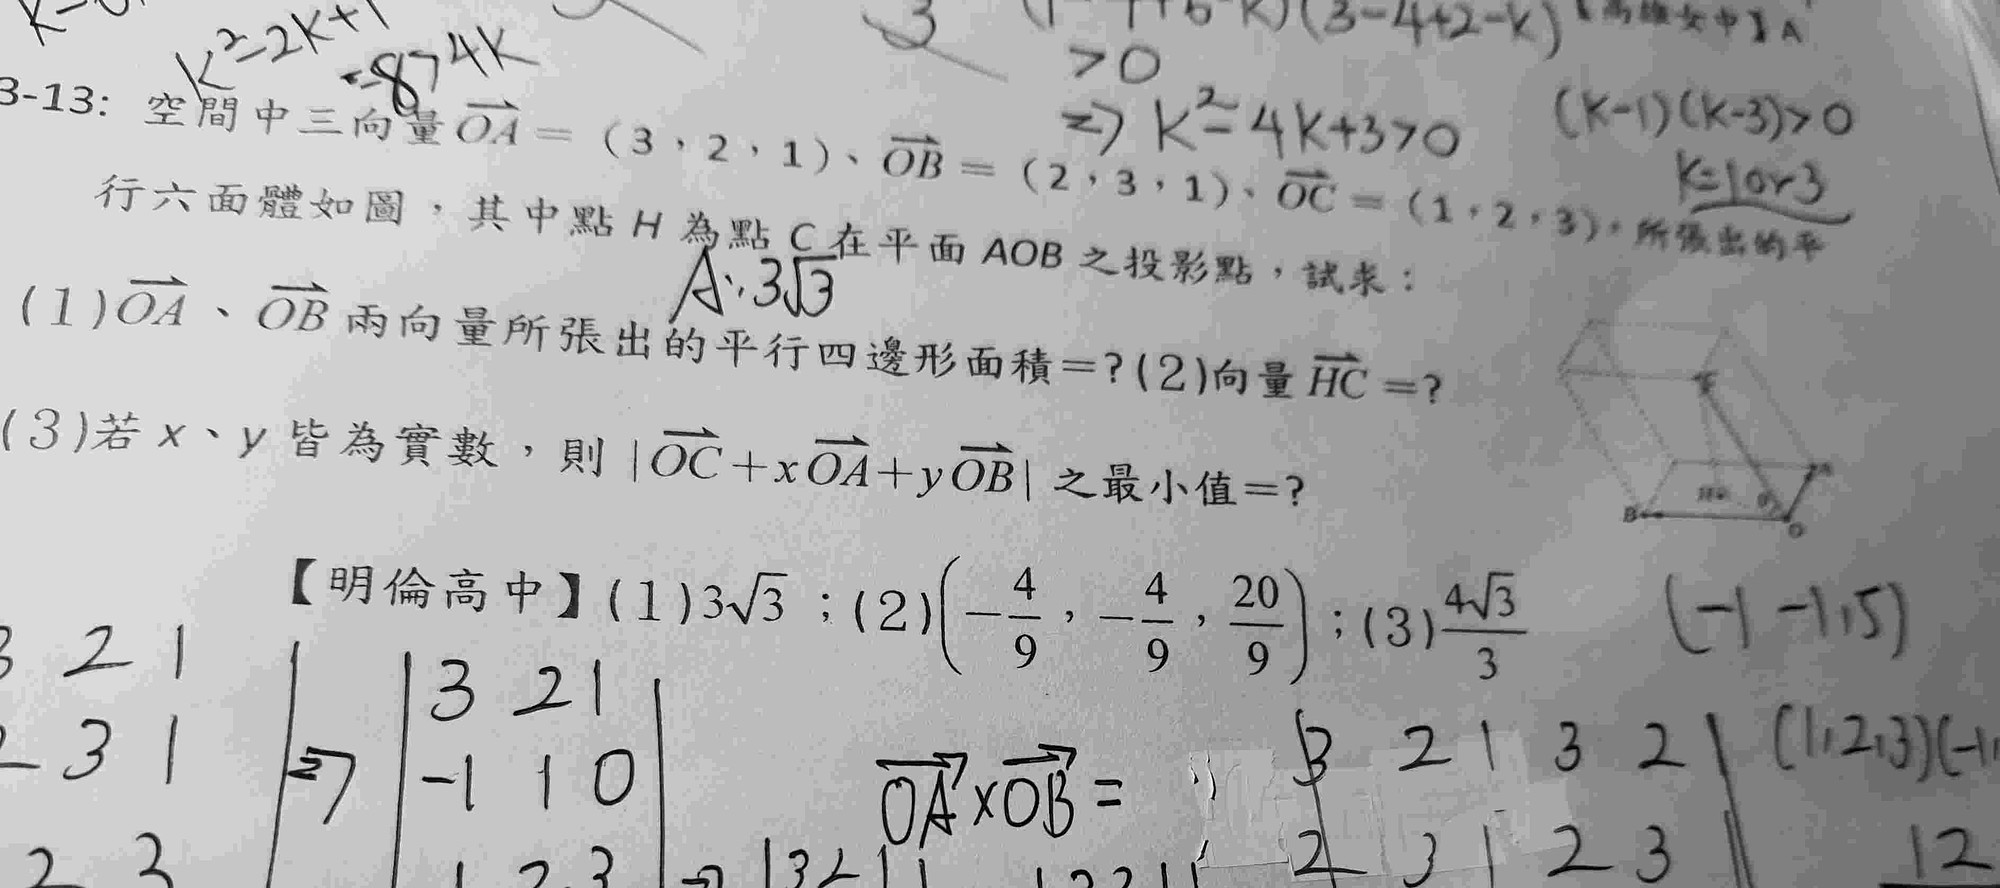 k²-2k+1
=874k
3
(3-4+2-k)【高雄女中】A
>0
⇒ k²-4k+3>0
(k-1)(k-3)>0
k=1or3
3-13: 空間中三向量 OA =（3，2，1）、OB =（2，3，1）、OC =（1，2，3），所張出的平
行六面體如圖，其中點 H 為點 C 在平面 AOB 之投影點，試求：
A:3√3
(1)OA、OB 兩向量所張出的平行四邊形面積=? (2)向量 HC =?
(3)若 x、y 皆為實數，則 |OC+xOA+yOB| 之最小值=?
B
O
【明倫高中】(1)3√3；(2)(-4/9，-4/9，20/9)；(3)4√3/3
(-1 -1,5)
3 2 1
3 1
2 3
⇒
3 2 1
-1 1 0
1 2 3
OA×OB =
3 2 1 3 2
2 3 1 2 3
(1,2,3)(-1,
12